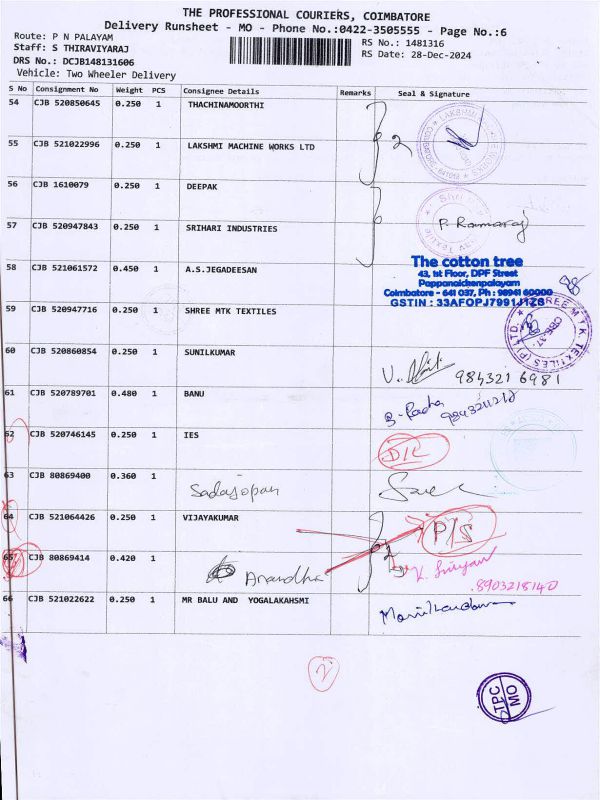 THE PROFESSIONAL COURIERS, COIMBATORE
Delivery Runsheet - MO - Phone No.:0422-3505555 - Page No.:6
Route: P N PALAYAM
Staff: S THIRAVIYARAJ
DRS No.: DCJB148131606
Vehicle: Two Wheeler Delivery
RS No.: 1481316
RS Date: 28-Dec-2024
S No Consignment No Weight PCS Consignee Details Remarks Seal & Signature
54 CJB 520850645 0.250 1 THACHINAMOORTHI
55 CJB 521022996 0.250 1 LAKSHMI MACHINE WORKS LTD 2
56 CJB 1610079 0.250 1 DEEPAK
57 CJB 520947843 0.250 1 SRIHARI INDUSTRIES P. Ramaraj
58 CJB 521061572 0.450 1 A.S.JEGADEESAN
The cotton tree
43, Ist Floor, DPF Street
Pappanaickenpalayam
Coimbatore - 641 037, Ph : 98941 60000
GSTIN : 33AFOPJ7991J1Z8
59 CJB 520947716 0.250 1 SHREE MTK TEXTILES
60 CJB 520860854 0.250 1 SUNILKUMAR 984321 6981
61 CJB 520789701 0.480 1 BANU
62 CJB 520746145 0.250 1 IES D/L
63 CJB 80869400 0.360 1 Sadajopan
64 CJB 521064426 0.250 1 VIJAYAKUMAR P/S
65 CJB 80869414 0.420 1 Anandha
8903218140
66 CJB 521022622 0.250 1 MR BALU AND YOGALAKAHSMI
2
TPC
MO